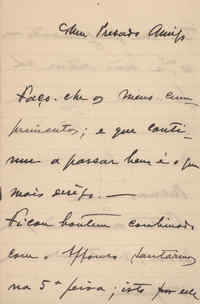 Meu Presado Amigo
Faço-lhe os meus cum-
primentos; e que conti-
nue a passar bem é o que
mais desejo. —
Ficou hontem combinado
com o Affonso jantarmos
na 5ª feira; isto por elle